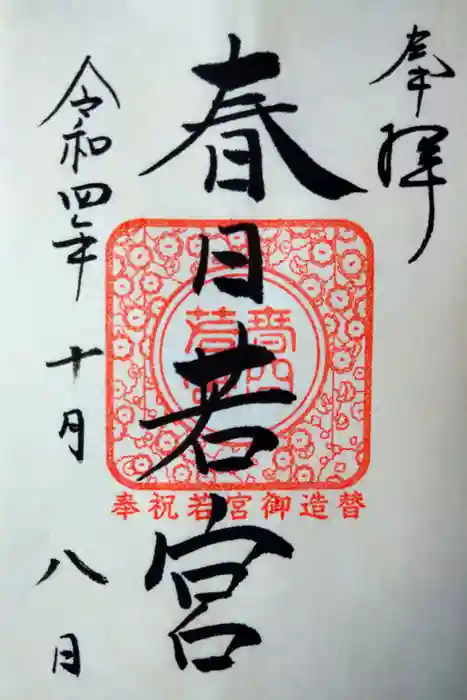 奉拝
春日若宮
令和四年十月八日
奉祝若宮御造替